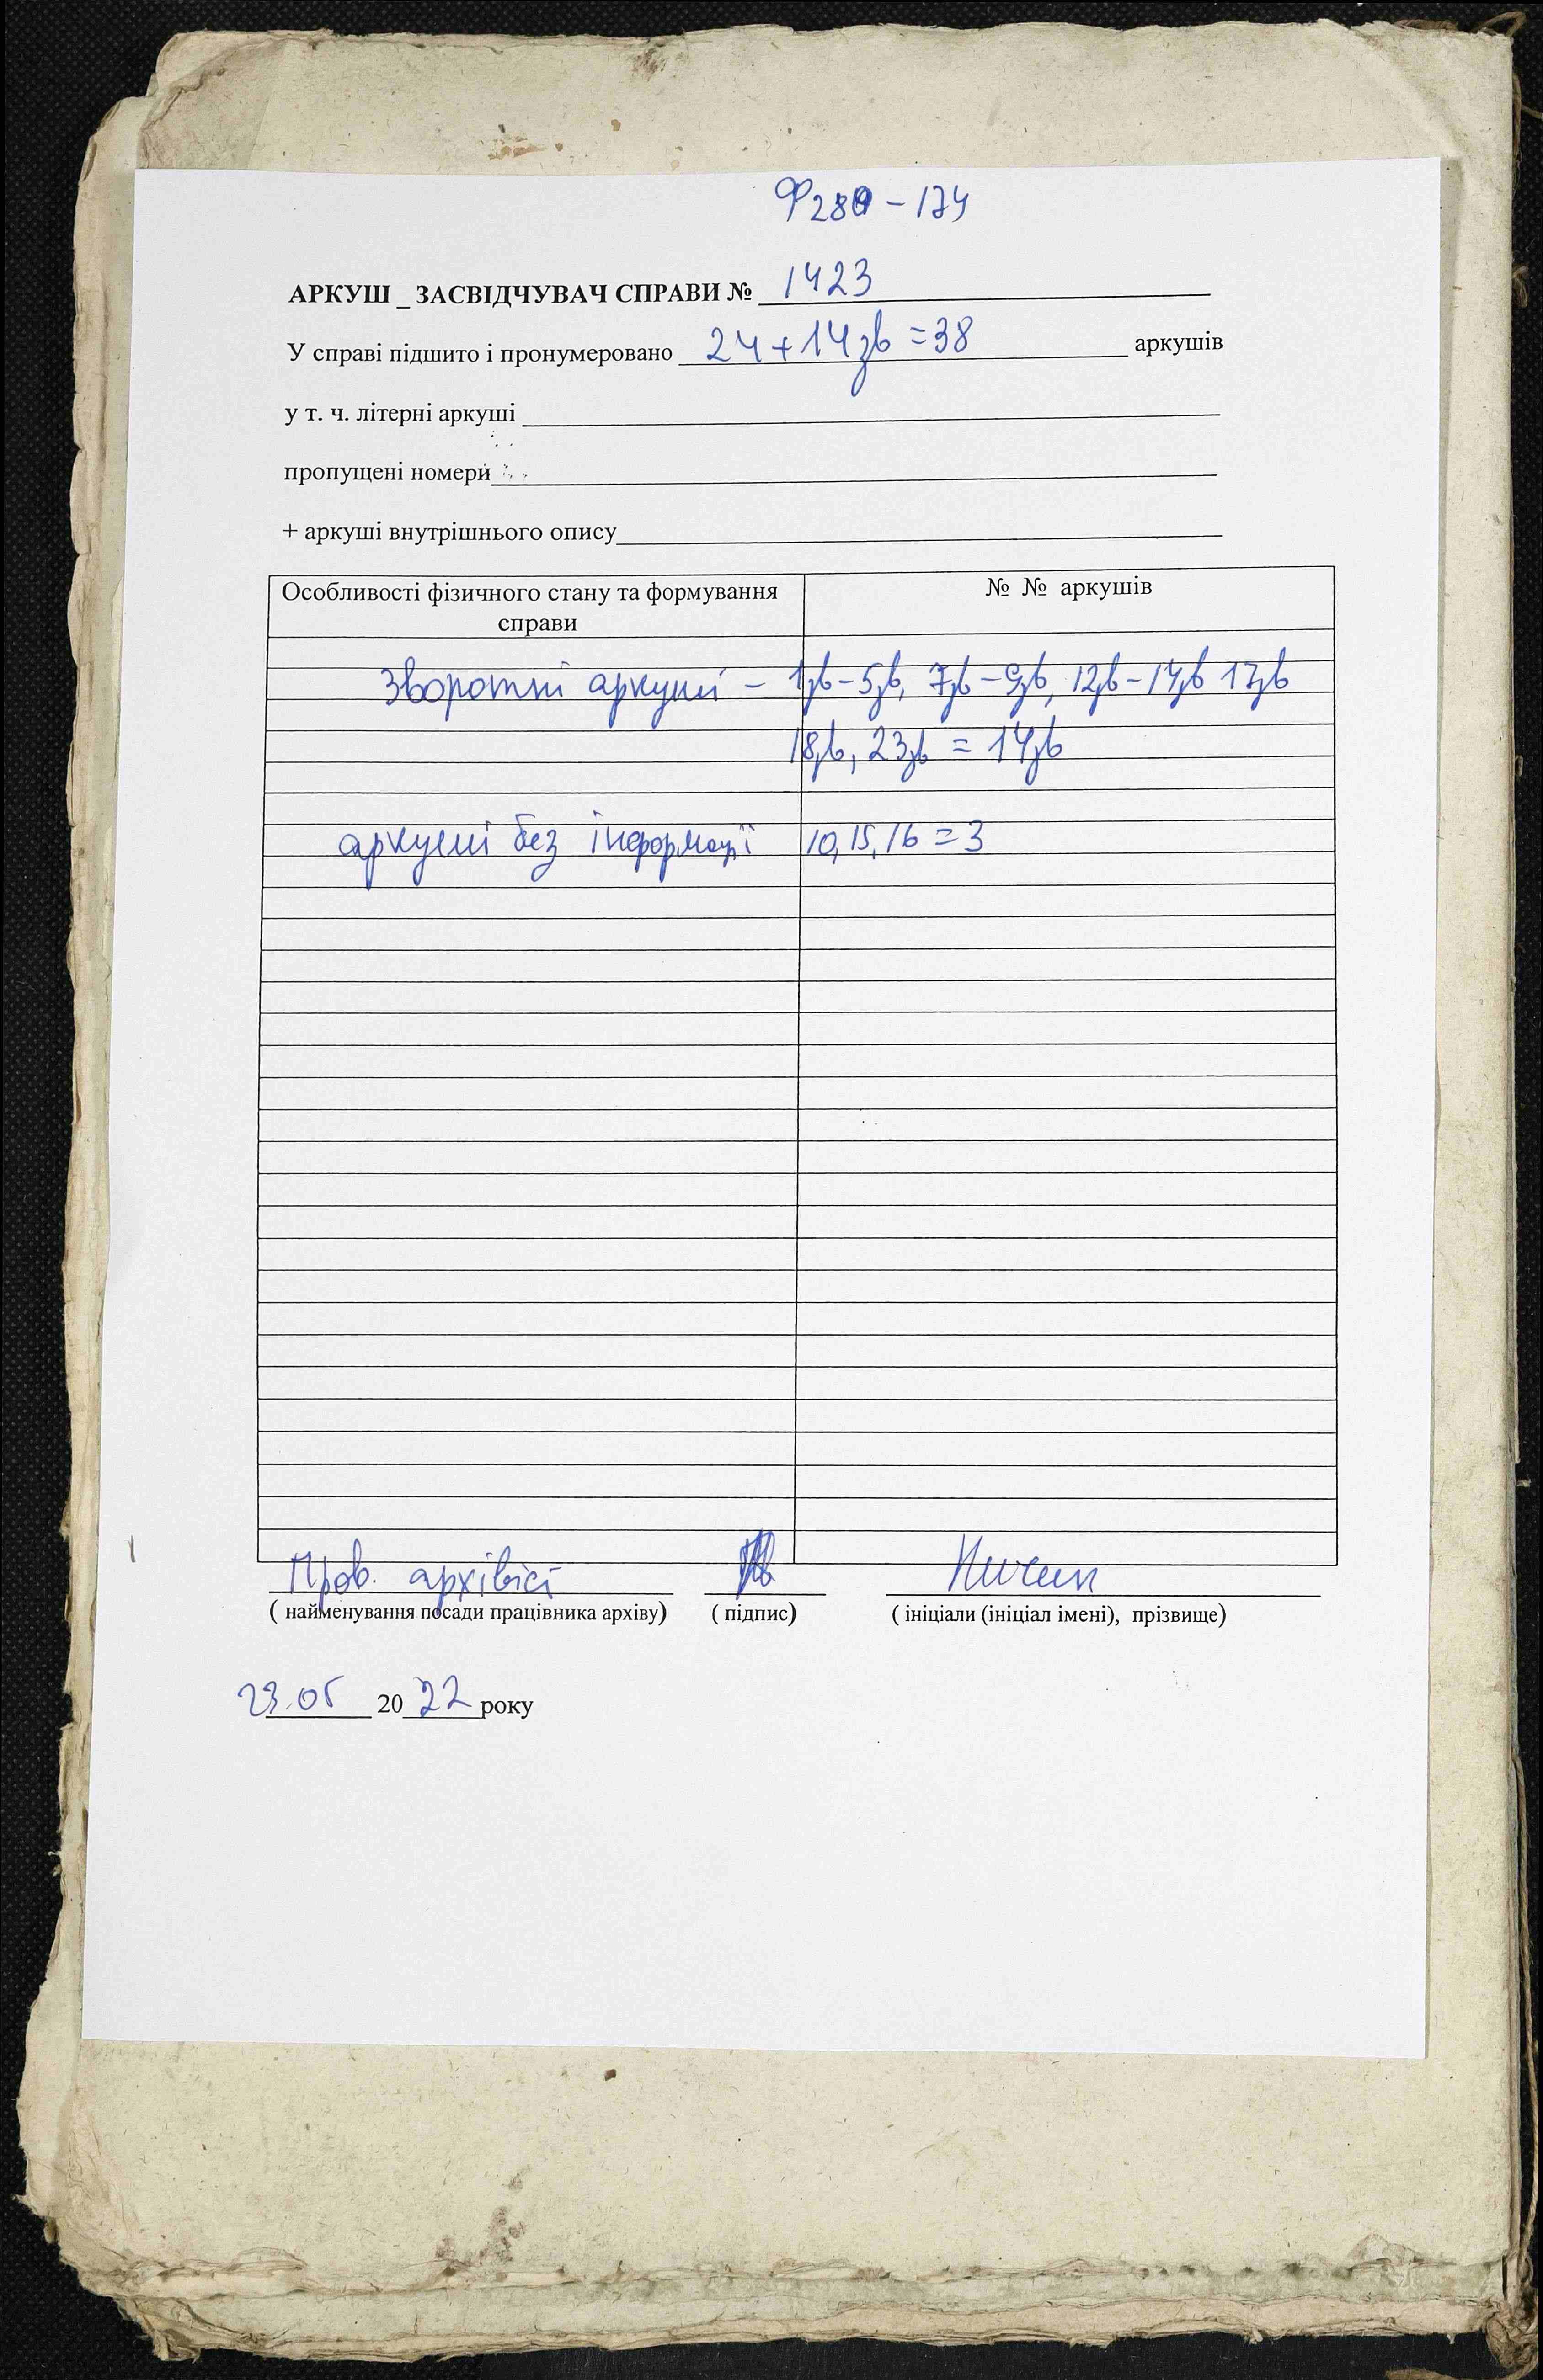 Ф280 - 174
АРКУШ _ ЗАСВІДЧУВАЧ СПРАВИ № 1423
У справі підшито і пронумеровано 24+14зв =38 аркушів
у т. ч. літерні аркуші
пропущені номери
+ аркуші внутрішнього опису
Особливості фізичного стану та формування справи
№ № аркушів
зворотні аркуші - 1зв-5зв, 7зв-9зв, 12зв-14зв 17зв
18зв, 23зв = 14зв
аркуші без інформації 10, 15, 16 = 3
Пров. архівіст
( найменування посади працівника архіву) ( підпис) ( ініціали (ініціал імені), прізвище)
23.05 2022 року